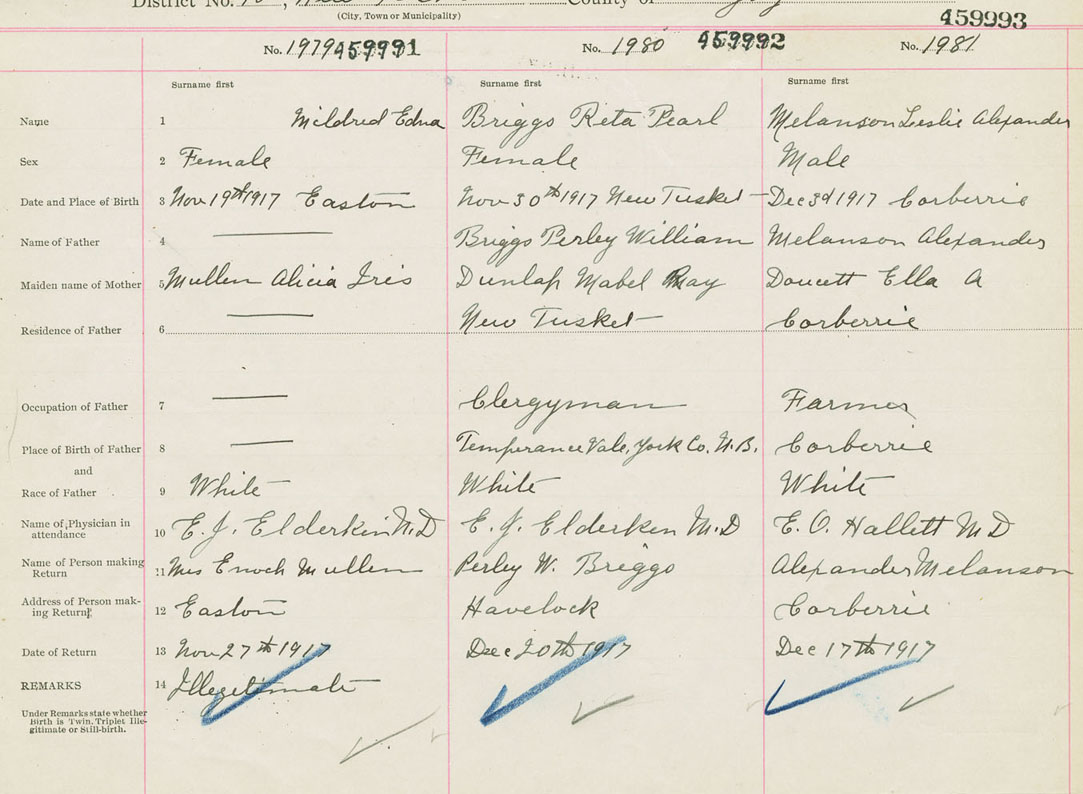 District No. County of
(City, Town or Municipality)
459993
No. 1979 459991 No. 1980 459992 No. 1981
Surname first Surname first Surname first
Name 1 Mildred Edna Briggs Reta Pearl Melanson Leslie Alexander
Sex 2 Female Female Male
Date and Place of Birth 3 Nov 19th 1917 Easton Nov 30th 1917 New Tusket Dec 3d 1917 Corberrie
Name of Father 4 Briggs Perley William Melanson Alexander
Maiden name of Mother 5 Mullen Alicia Iris Dunlap Mabel Ray Doucett Ella A
Residence of Father 6 New Tusket Corberrie
Occupation of Father 7 Clergyman Farmer
Place of Birth of Father 8 Temperance Vale, York Co. N.B. Corberrie
and
Race of Father 9 White White White
Name of Physician in
attendance 10 E. J. Elderkin M.D E. J. Elderken M.D E. O. Hallett M D
Name of Person making
Return 11 Mrs Enoch Mullen Perley W. Briggs Alexander Melanson
Address of Person mak-
ing Return 12 Easton Havelock Corberrie
Date of Return 13 Nov 27th 1917 Dec 20th 1917 Dec 17th 1917
REMARKS 14 Illegitimate
Under Remarks state whether
Birth is Twin, Triplet, Ille-
gitimate or Still-birth.